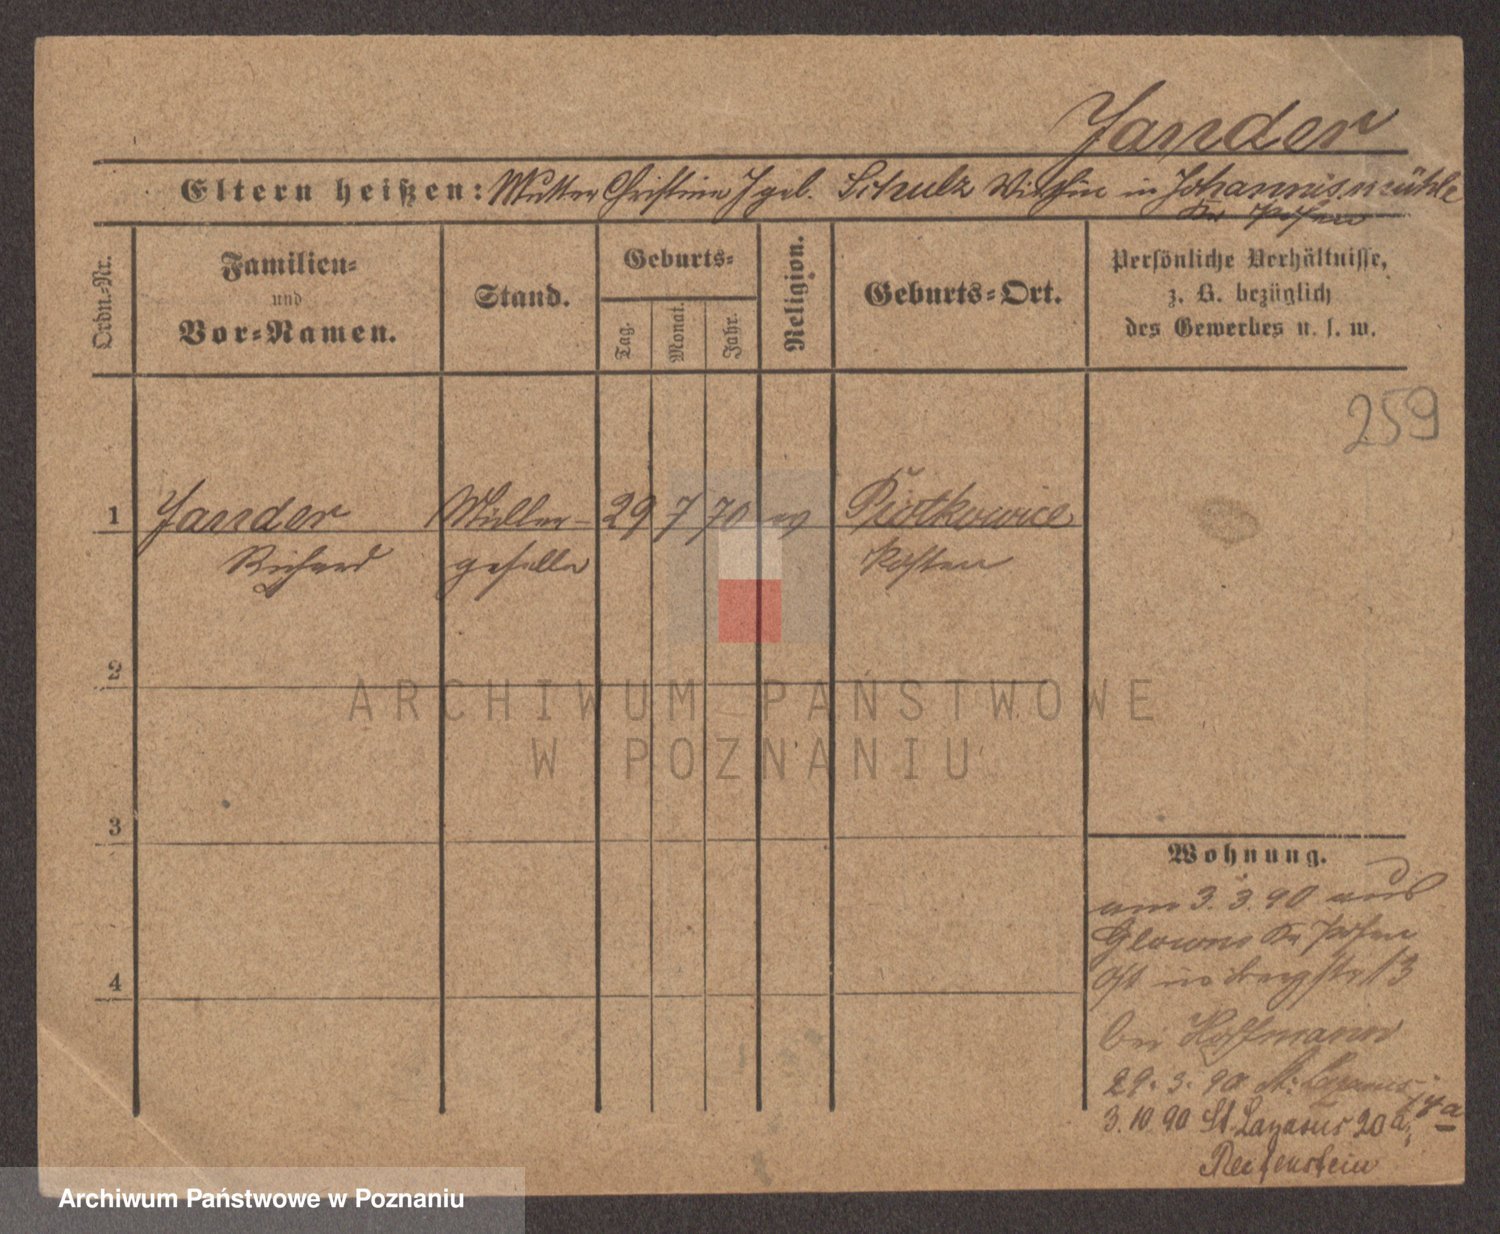 Jander
Eltern heißen: Mutter Christine J geb. Schulz Wirthin in Johannismühle
Kr Posen
Ordn.-Nr.
Familien-
und
Vor-Namen.
Stand.
Geburts-
Tag.
Monat.
Jahr.
Religion.
Geburts-Ort.
Persönliche Verhältnisse,
z. B. bezüglich
des Gewerbes u. s. w.
259
1 Jander Müller- 29 7 70 ev Piotkowice
Richard geselle Kosten
2
ARCHIWUM PAŃSTWOWE
W POZNANIU
3
4
Wohnung.
am 3.3.90 aus
Glowno Kr Posen
13
bei Hoffmann
29.3.90 St. Lazarus
3.10.90 St. Lazarus 20a
Reifenstein
Archiwum Państwowe w Poznaniu